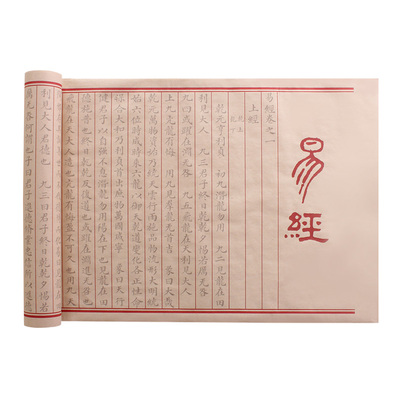 易經
易經卷之一
上經
乾元亨利貞 初九潛龍勿用 九二見龍在田
利見大人 九三君子終日乾乾夕惕若厲无咎
九四或躍在淵无咎 九五飛龍在天利見大人
上九亢龍有悔 用九見羣龍无首吉 彖曰大哉
乾元萬物資始乃統天雲行雨施品物流形大明終
始六位時成時乘六龍以御天乾道變化各正性命
保合大和乃利貞首出庶物萬國咸寧 象曰天行
健君子以自強不息潛龍勿用陽在下也見龍在田
德施普也終日乾乾反復道也或躍在淵進无咎也
飛龍在天大人造也亢龍有悔盈不可久也用九天
利見大人君德也 九三曰君子終日乾乾夕惕若
无咎何謂也子曰君子進德